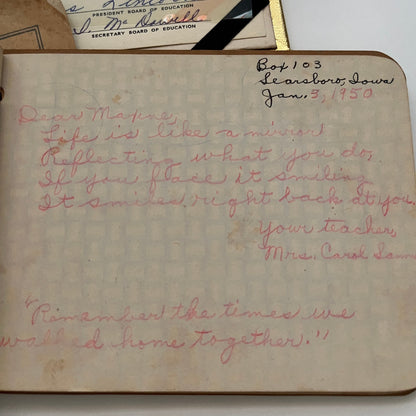 PRESIDENT BOARD OF EDUCATION
SECRETARY BOARD OF EDUCATION
Box 103
Searsboro, Iowa
Jan. 3, 1950
Dear Maxine,
Life is like a mirror
Reflecting what you do,
If you face it smiling
It smiles right back at you.
Your teacher,
Mrs. Carol
"Remember the times we
walked home together."